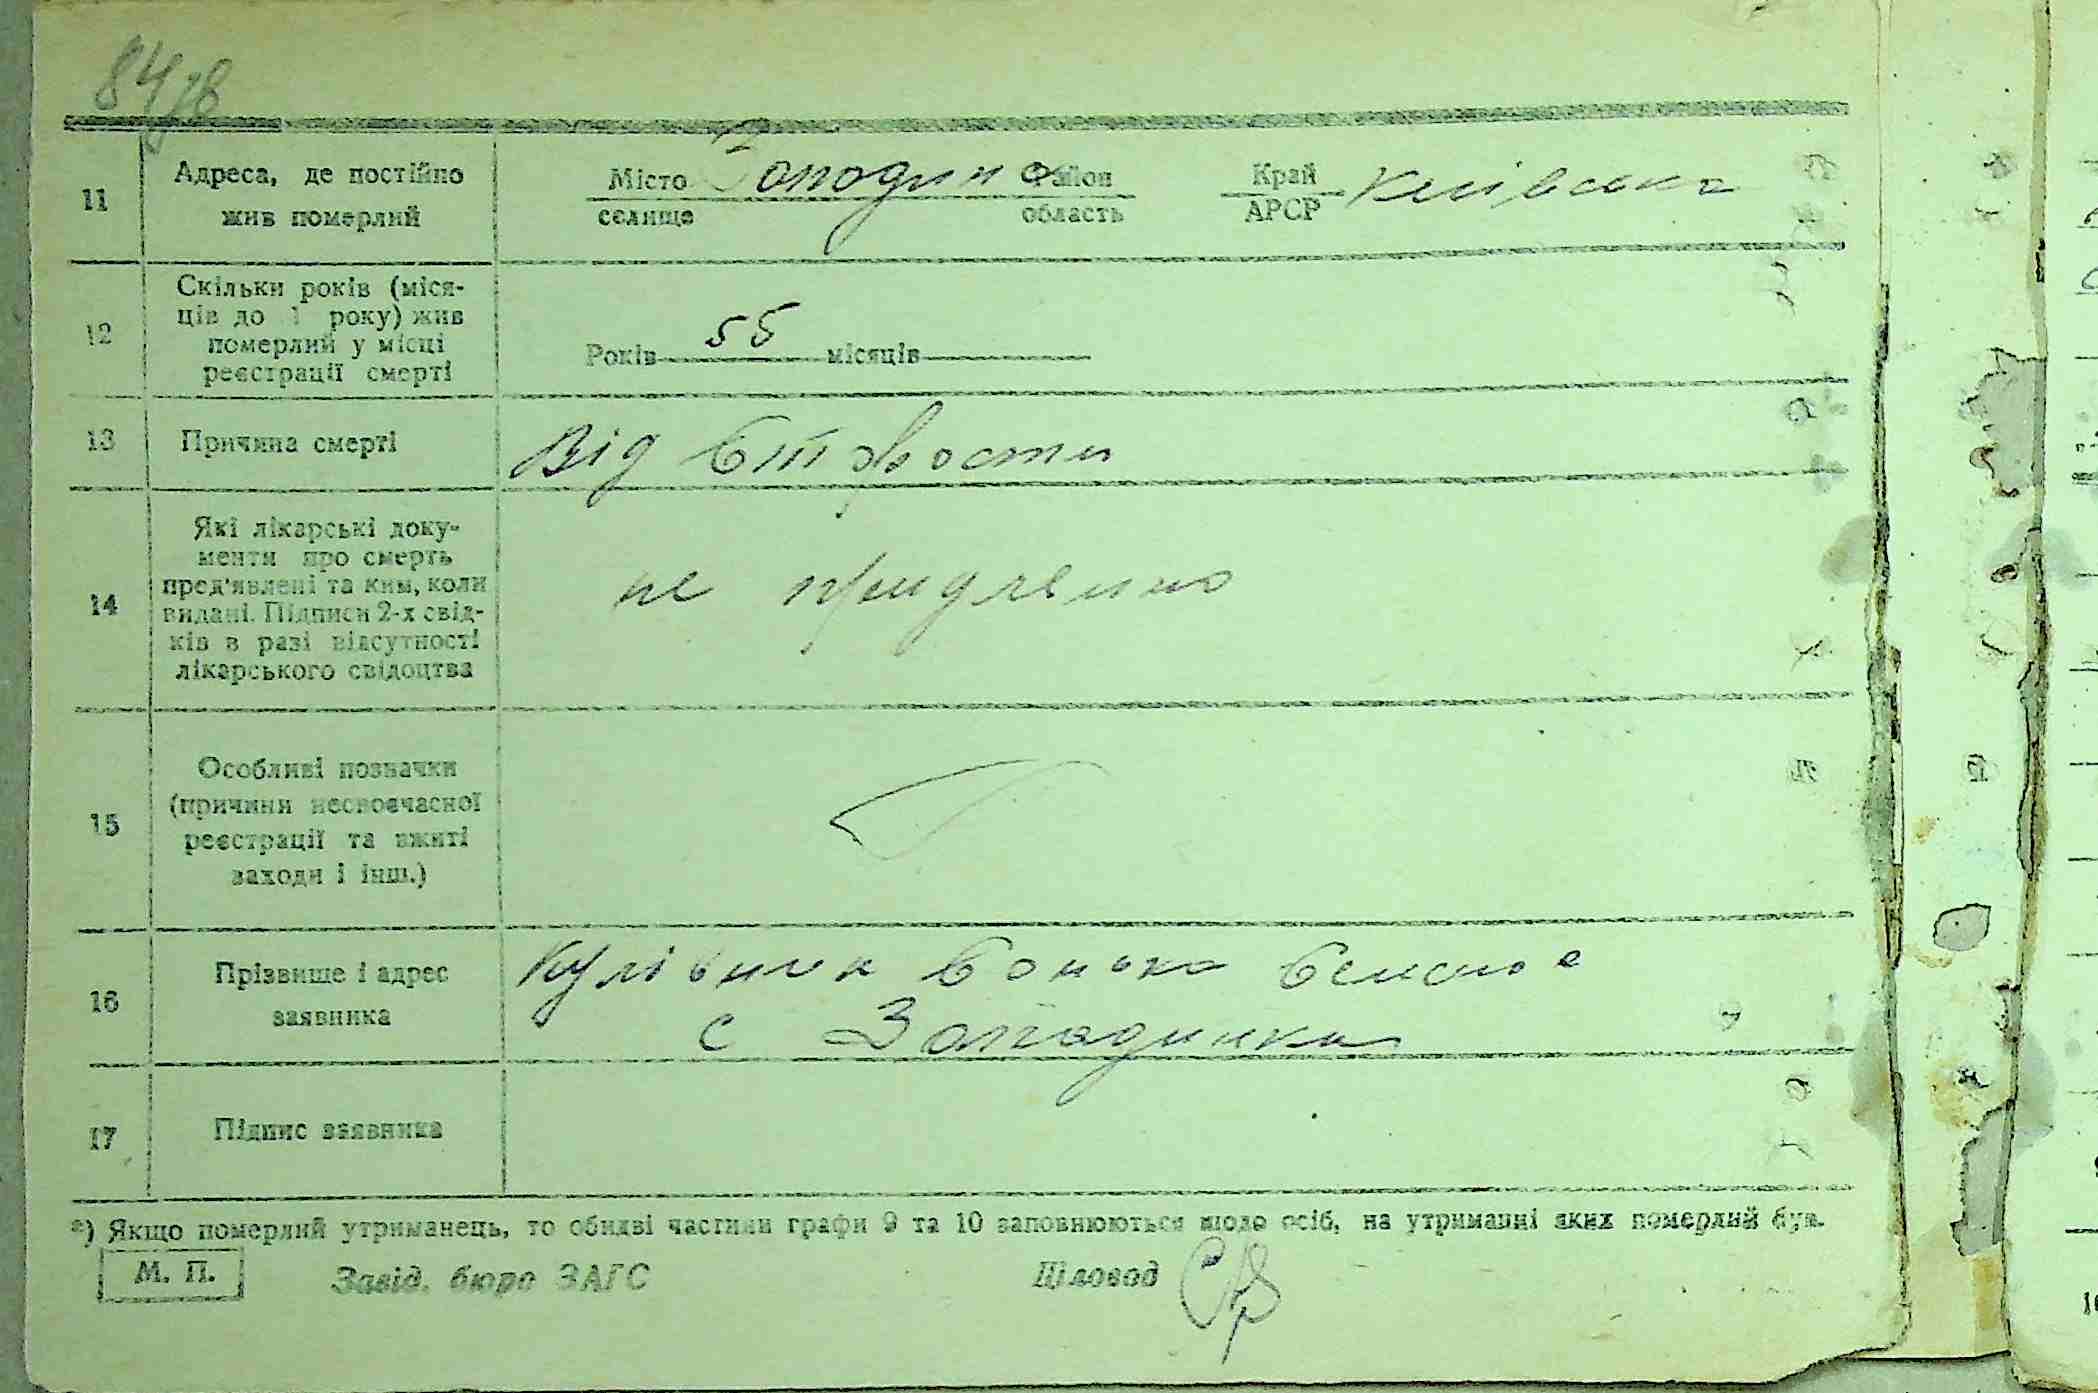 84зв
11
Адреса, де постійно
жив померлий
Місто
селище
Район
область
Край
АРСР
Київська
12
Скільки років (міся-
ців до 1 року) жив
померлий у місці
реєстрації смерті
Років 55 місяців
13
Причина смерті
Від старости
14
Які лікарські доку-
менти про смерть
пред'явлені та ким, коли
видані. Підписи 2-х свід-
ків в разі відсутності
лікарського свідоцтва
не
15
Особливі позначки
(причини несвоєчасної
реєстрації та вжиті
заходи і інш.)
16
Прізвище і адрес
заявника
с Западинка
17
Підпис заявника
*) Якщо померлий утриманець, то обидві частини графи 9 та 10 заповнюються щодо осіб, на утриманні яких померлий був.
М. П.
Завід. бюро ЗАГС
Діловод